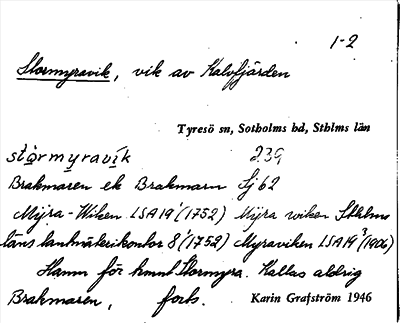 1-2
Stormyravik, vik av Kalvfjärden
Tyresö sn, Sotholms hd, Sthlms län
stormyravik 239
Brakmaren ek Brakmarn Sj 62
Myra-Wiken LSA 19¹(1752) Myra wiken Sthlms
läns lantmäterikontor 8¹(1752) Myraviken LSA 19³(1906)
Hamn för hmnl Stormyra. Kallas aldrig
Brakmaren, forts. Karin Grafström 1946